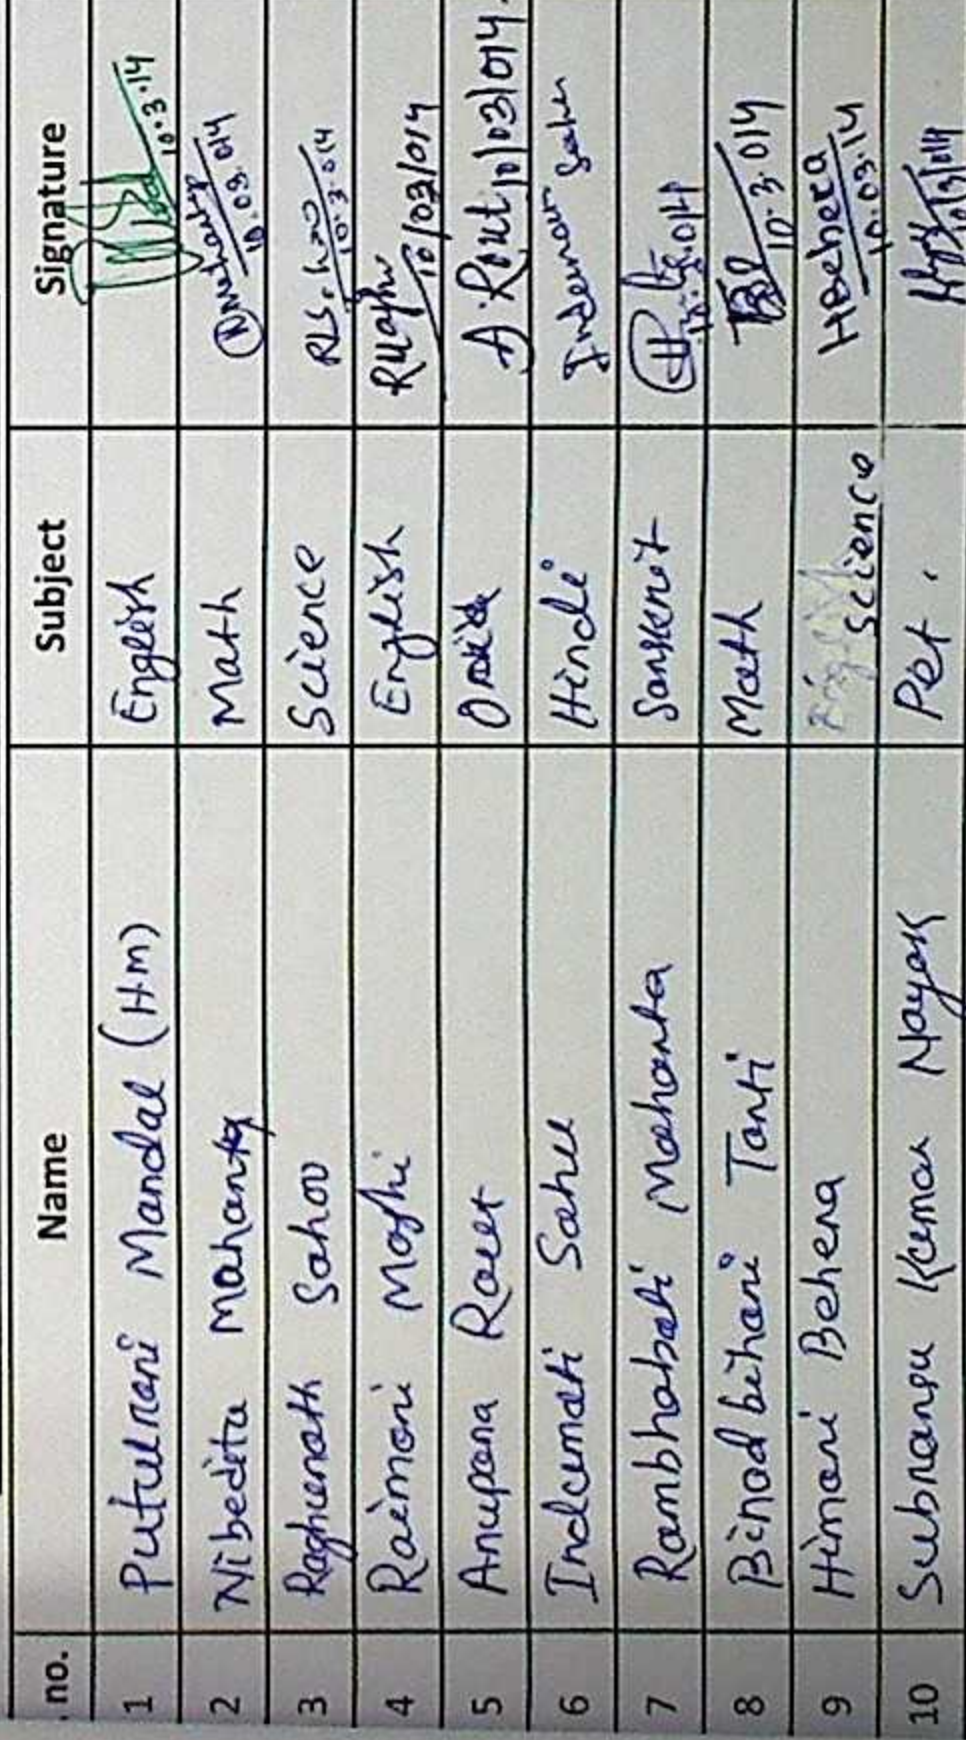 no. Name Subject Signature
1 Putulrani Mandal (Hm) English 10.3.14
2 Nibedita Mahanta Math 10.03.014
3 Raghunath Sahoo Science RLS. hoo 10.3.014
4 Raimoni Majhi English RMajhi 10/03/014
5 Anupama Rout Odia A Rout 10/03/014.
6 Indumati Sahu Hindi Sahu
7 Rambhabati Mahanta Sanskrit
8 Binod bihari Tanti Math 10.3.014
9 Himani Behera Science HBehera 10.03.14
10 Kumar Nayak Pet.